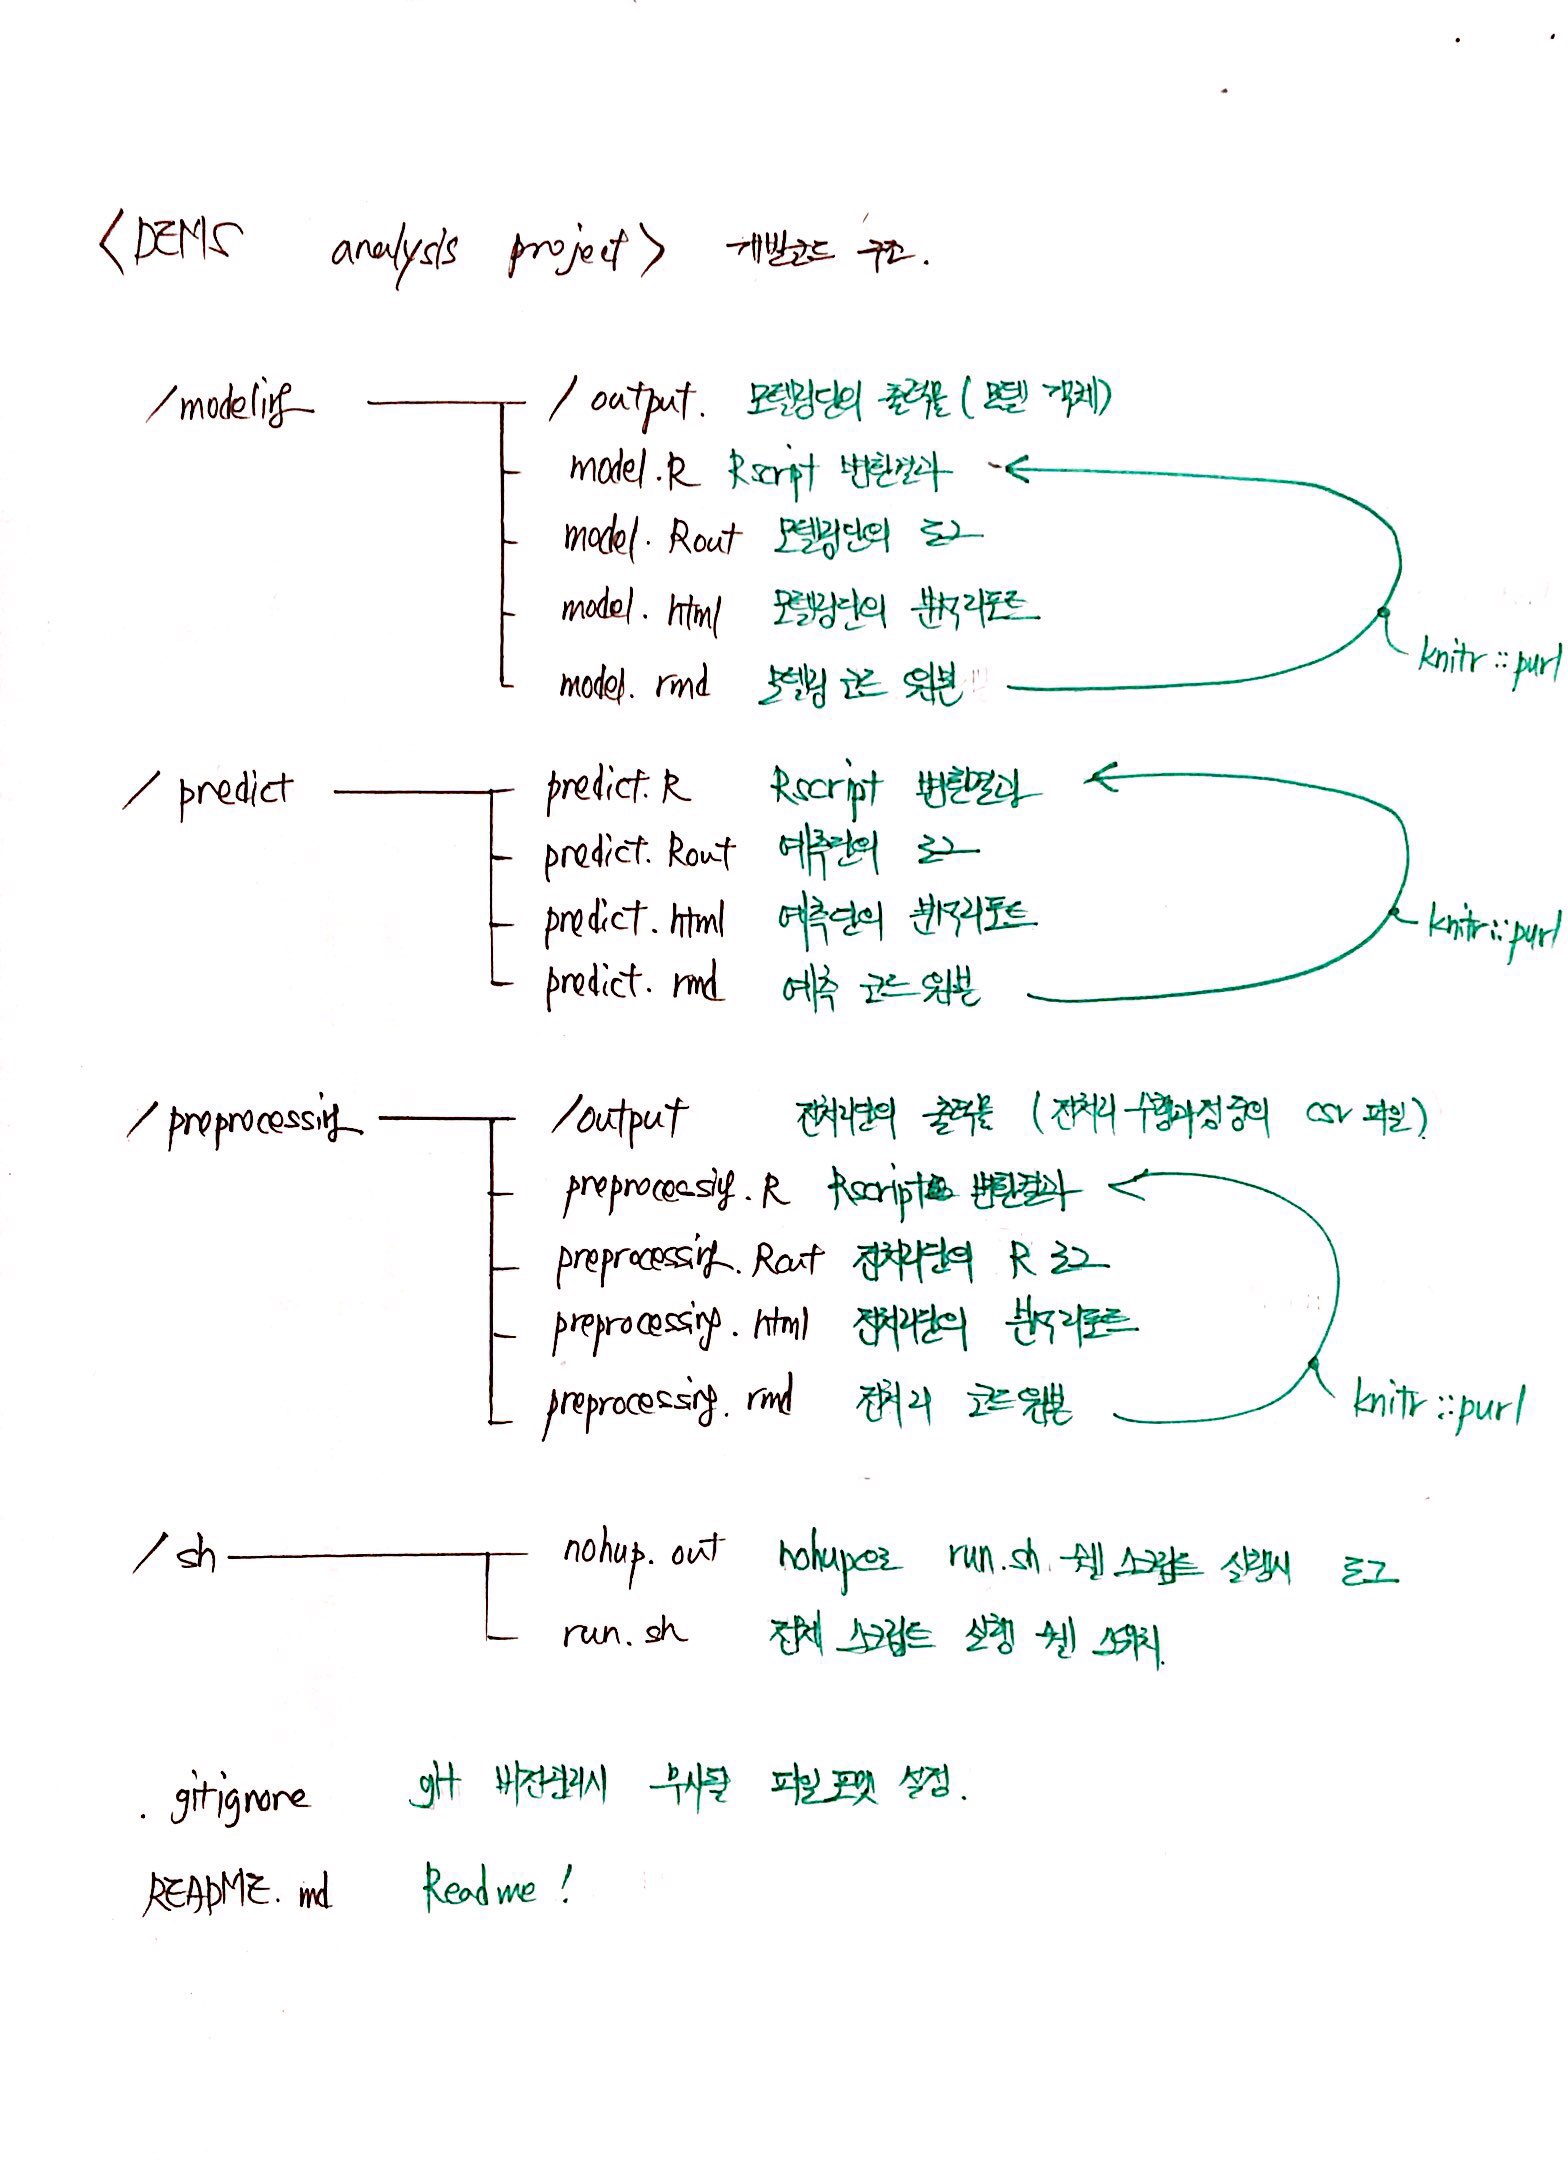 <DEMS analysis project> 개발코드 구조.
/modeling /output. 모델링단의 출력물 (모델 객체)
model.R Rscript 변환결과
model.Rout 모델링단의 로그
model.html 모델링단의 분석리포트
knitr::purl
model.rmd 모델링 코드 원본
/predict predict.R Rscript 변환결과
predict.Rout 예측단의 로그
predict.html 예측단의 분석리포트
knitr::purl
predict.rmd 예측 코드 원본
/preprocessing /output 전처리단의 출력물 (전처리 수행과정 중의 csv 파일)
preprocessing.R Rscript 변환결과
preprocessing.Rout 전처리단의 R 로그
preprocessing.html 전처리단의 분석리포트
preprocessing.rmd 전처리 코드 원본
knitr::purl
/sh nohup.out nohup으로 run.sh 쉘 스크립트 실행시 로그
run.sh 전체 스크립트 실행 쉘
.gitignore git 버전관리시 무시될 파일포맷 설정.
README.md Readme!